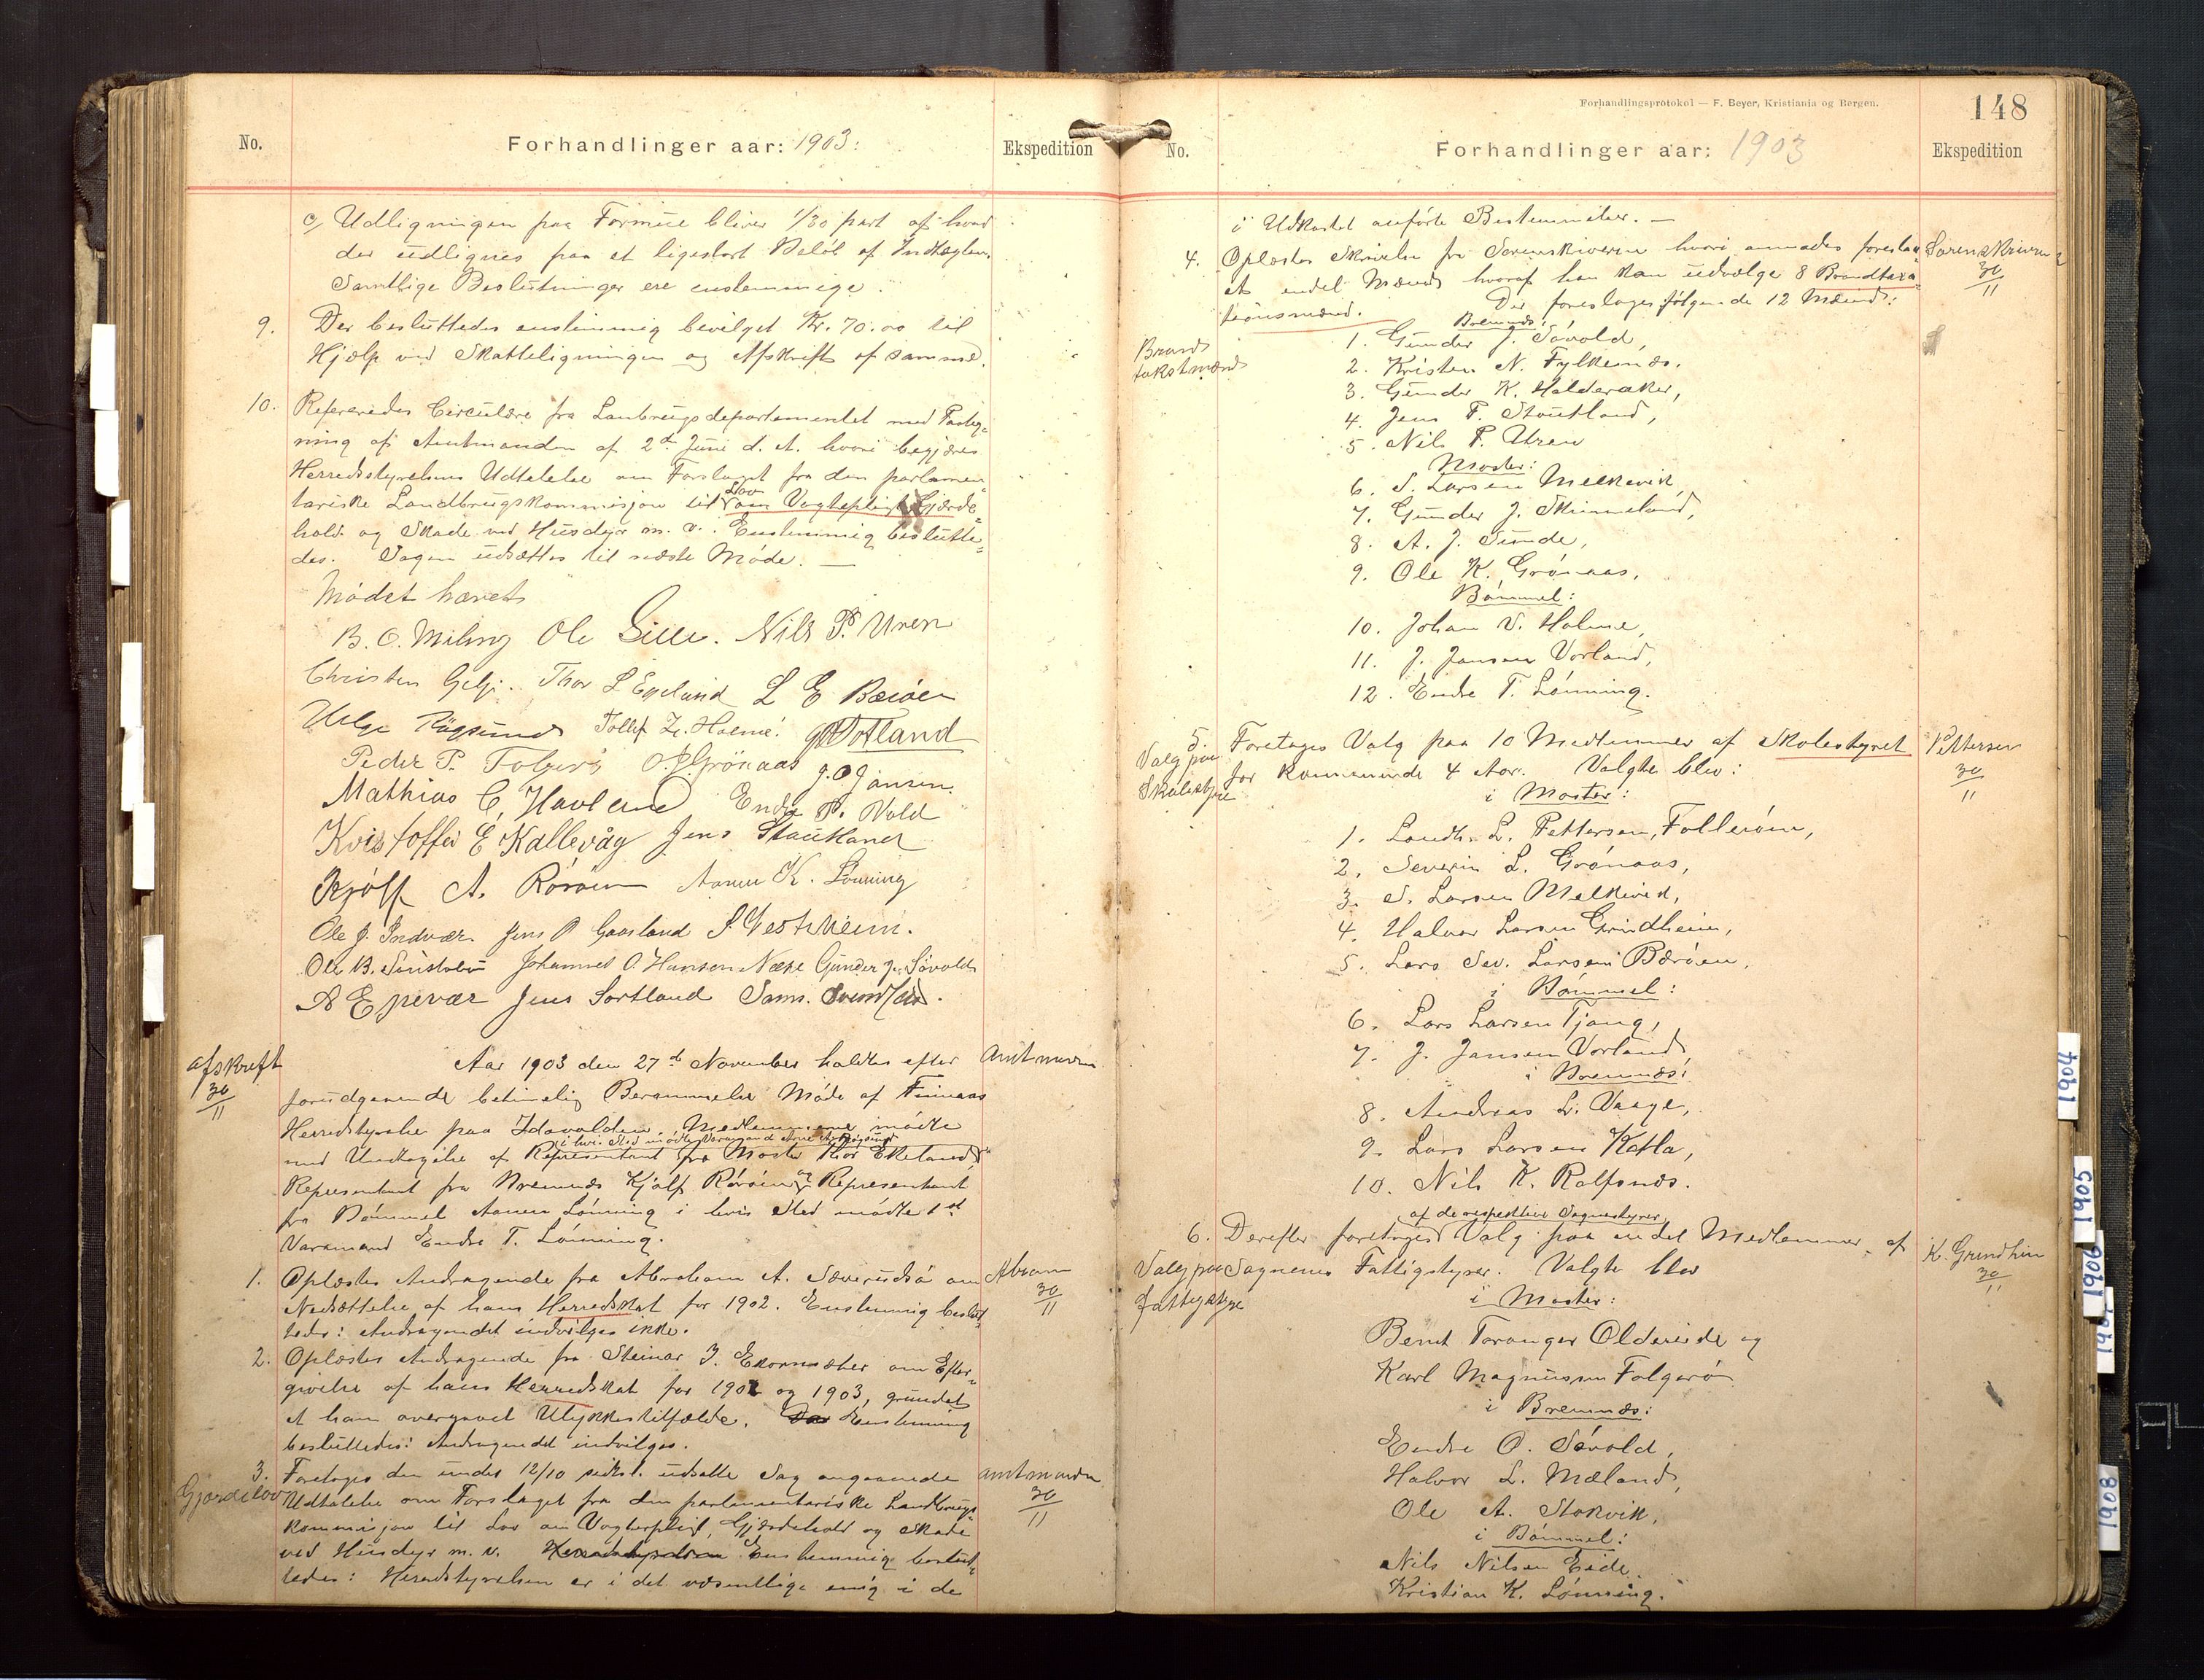 No.
Forhandlinger aar: 1903.
Ekspedition
c) Udligningen paa Formue bliver 1/30 part af hvad
der udlignes paa et ligestort Beløb af Indtægten.
Samtlige Beslutninger ere enstemmige.
9. Der besluttedes enstemmig bevilget Kr. 70.00 til
Hjælp ved Skatteligningen og Afskrift af samme.
10. Refereredes Circulære fra Lanbrugsdepartementet med Paateg=
ning af Amtmanden af 2de Juni d. A. hvori begjæres
Herredsstyrelsens Udtalelse om Forslaget fra den parlamen=
tariske Landbrugskommisjon til Lov om Vogtepligt Gjærde=
hold og Skade ved Husdyr m. v. Enstemmig beslutte=
des. Sagen udsættes til næste Møde. —
Mødet hævet
B. O. Miling Ole Lie. Nils P. Uren
Christen Gilje. Thor L Egeland L E Bærøen
Helge Røgsund Tollef Z. Holme. G Totland
Peder P. Folgerø O. J. Grönaas J. O Jansen.
Mathias C, Havland Endre P. Vold
Kristoffer E Kallevåg Jens Stautland
Kjölf A. Rörøen Aanen K. Lönning
Ole J. Indvær Jens P Gaasland S. Vestheim.
Ole B. Johannes O. Hansen Næse Gunder J. Sövold
A Espevær Jens Sortland Sams.
afskreft
30/11
Aar 1903 den 27de November holdtes efter
Amtmanden
forudgaaende betimelig Berammelse Møde af Finnaas
Herredsstyrelse paa Idavolden. Medlemmerne mødte
i hvis Sted mødte Varamand Arne
med Undtagelse af Repræsentant fra Moster Thor Ekeland,
Repræsentant fra Bremnæs Kjölf Rörøen og Repræsentant
fra Bömmel Aanen Lönning i hvis Sted mödte 1ste
Varamand Endre T. Lönning.
1. Oplæstes Andragende fra Abraham A. Sæverudsö om
Abram
30/11
Nedsættelse af hans Herredsskat for 1902. Enstemmig beslut=
tedes: Andragendet indvilges ikke.
2. Oplæstes Andragende fra Steinar J. Ekornsæter om Efter=
givelse af hans Herredsskat for 1902 og 1903, grundet
at han overgaaet Ulykkestilfælde. Enstemmig
besluttedes: Andragendet indvilges.
3. Foretoges den under 12/10 sidstl. udsatte Sag angaaende
amtmanden
30/11
Gjærdelov
Udtalelse om Forslaget fra den parlamentariske Landbrugs
kommisjon til Lov om Vogterpligt, Gjærdehold og Skade
ved Husdyr m. v. Herredsstyrelsen Enstemmig beslut=
tedes: Herredsstyrelsen er i det væsentlige enig i de
Forhandlingsprotokol — F. Beyer, Kristiania og Bergen.
148
No.
Forhandlinger aar: 1903
Ekspedition
i Udkastet anførte Bestemmelser. —
4. Oplæstes Skrivelse fra Sorenskriveren hvori anmodes foreslaa
Sorenskriveren
30/11
et endel Mænd hvoraf han kan udvælge 8 Brandtaxa
tionsmænd. Der foreslages følgende 12 Mænd:
Brand
takstmænd
Bremnæs:
1. Gunder J. Sövold,
2. Kristen N. Fylkesnæs.
3. Gunder K. Halderaker,
4. Jens P. Stautland,
5. Nils P. Uren
Moster:
6. S. Larsen Melkevik
7. Gunder J. Skimmeland,
8. A. J. Sunde,
9. Ole K. Grönaas,
Bömmel:
10. Johan V. Holme,
11. J. Jansen Vorland,
12. Endre T. Lönning.
5. Foretages Valg paa 10 Medlemmer af Skolestyret
Pettersen
30/11
Valg paa
Skolestyre
for kommende 4 Aar. Valgte blev:
i Moster:
1. Landh. L. Pettersen, Folleröen,
2. Severin L. Grönaas,
3. S. Larsen Melkevik,
4. Halvor Larsen Grindheim,
5. Lars Sev. Larsen Bærøen,
i Bömmel:
6. Lars Larsen Tjong,
7. J. Jansen Vorland,
i Bremnæs:
8. Andreas L. Vaage,
9. Lars Larsen Katla,
10. Nils K. Rolfsnæs.
af de respektive Sognestyrer
6. Derefter foretoges Valg paa endel Medlemmer af
K. Grindheim
30/11
Valg paa
fattigstyre
Sognenes Fattigstyrer. Valgte blev
i Moster:
Bernt Taranger Oldereide og
Karl Magnussen Folgerö
i Bremnæs:
Endre O. Sövold,
Halvor L. Mæland,
Ole A. Stokvik,
i Bömmel:
Nils Nilsen Eide.
Kristian K. Lönning.
1904
1905
1906
1908